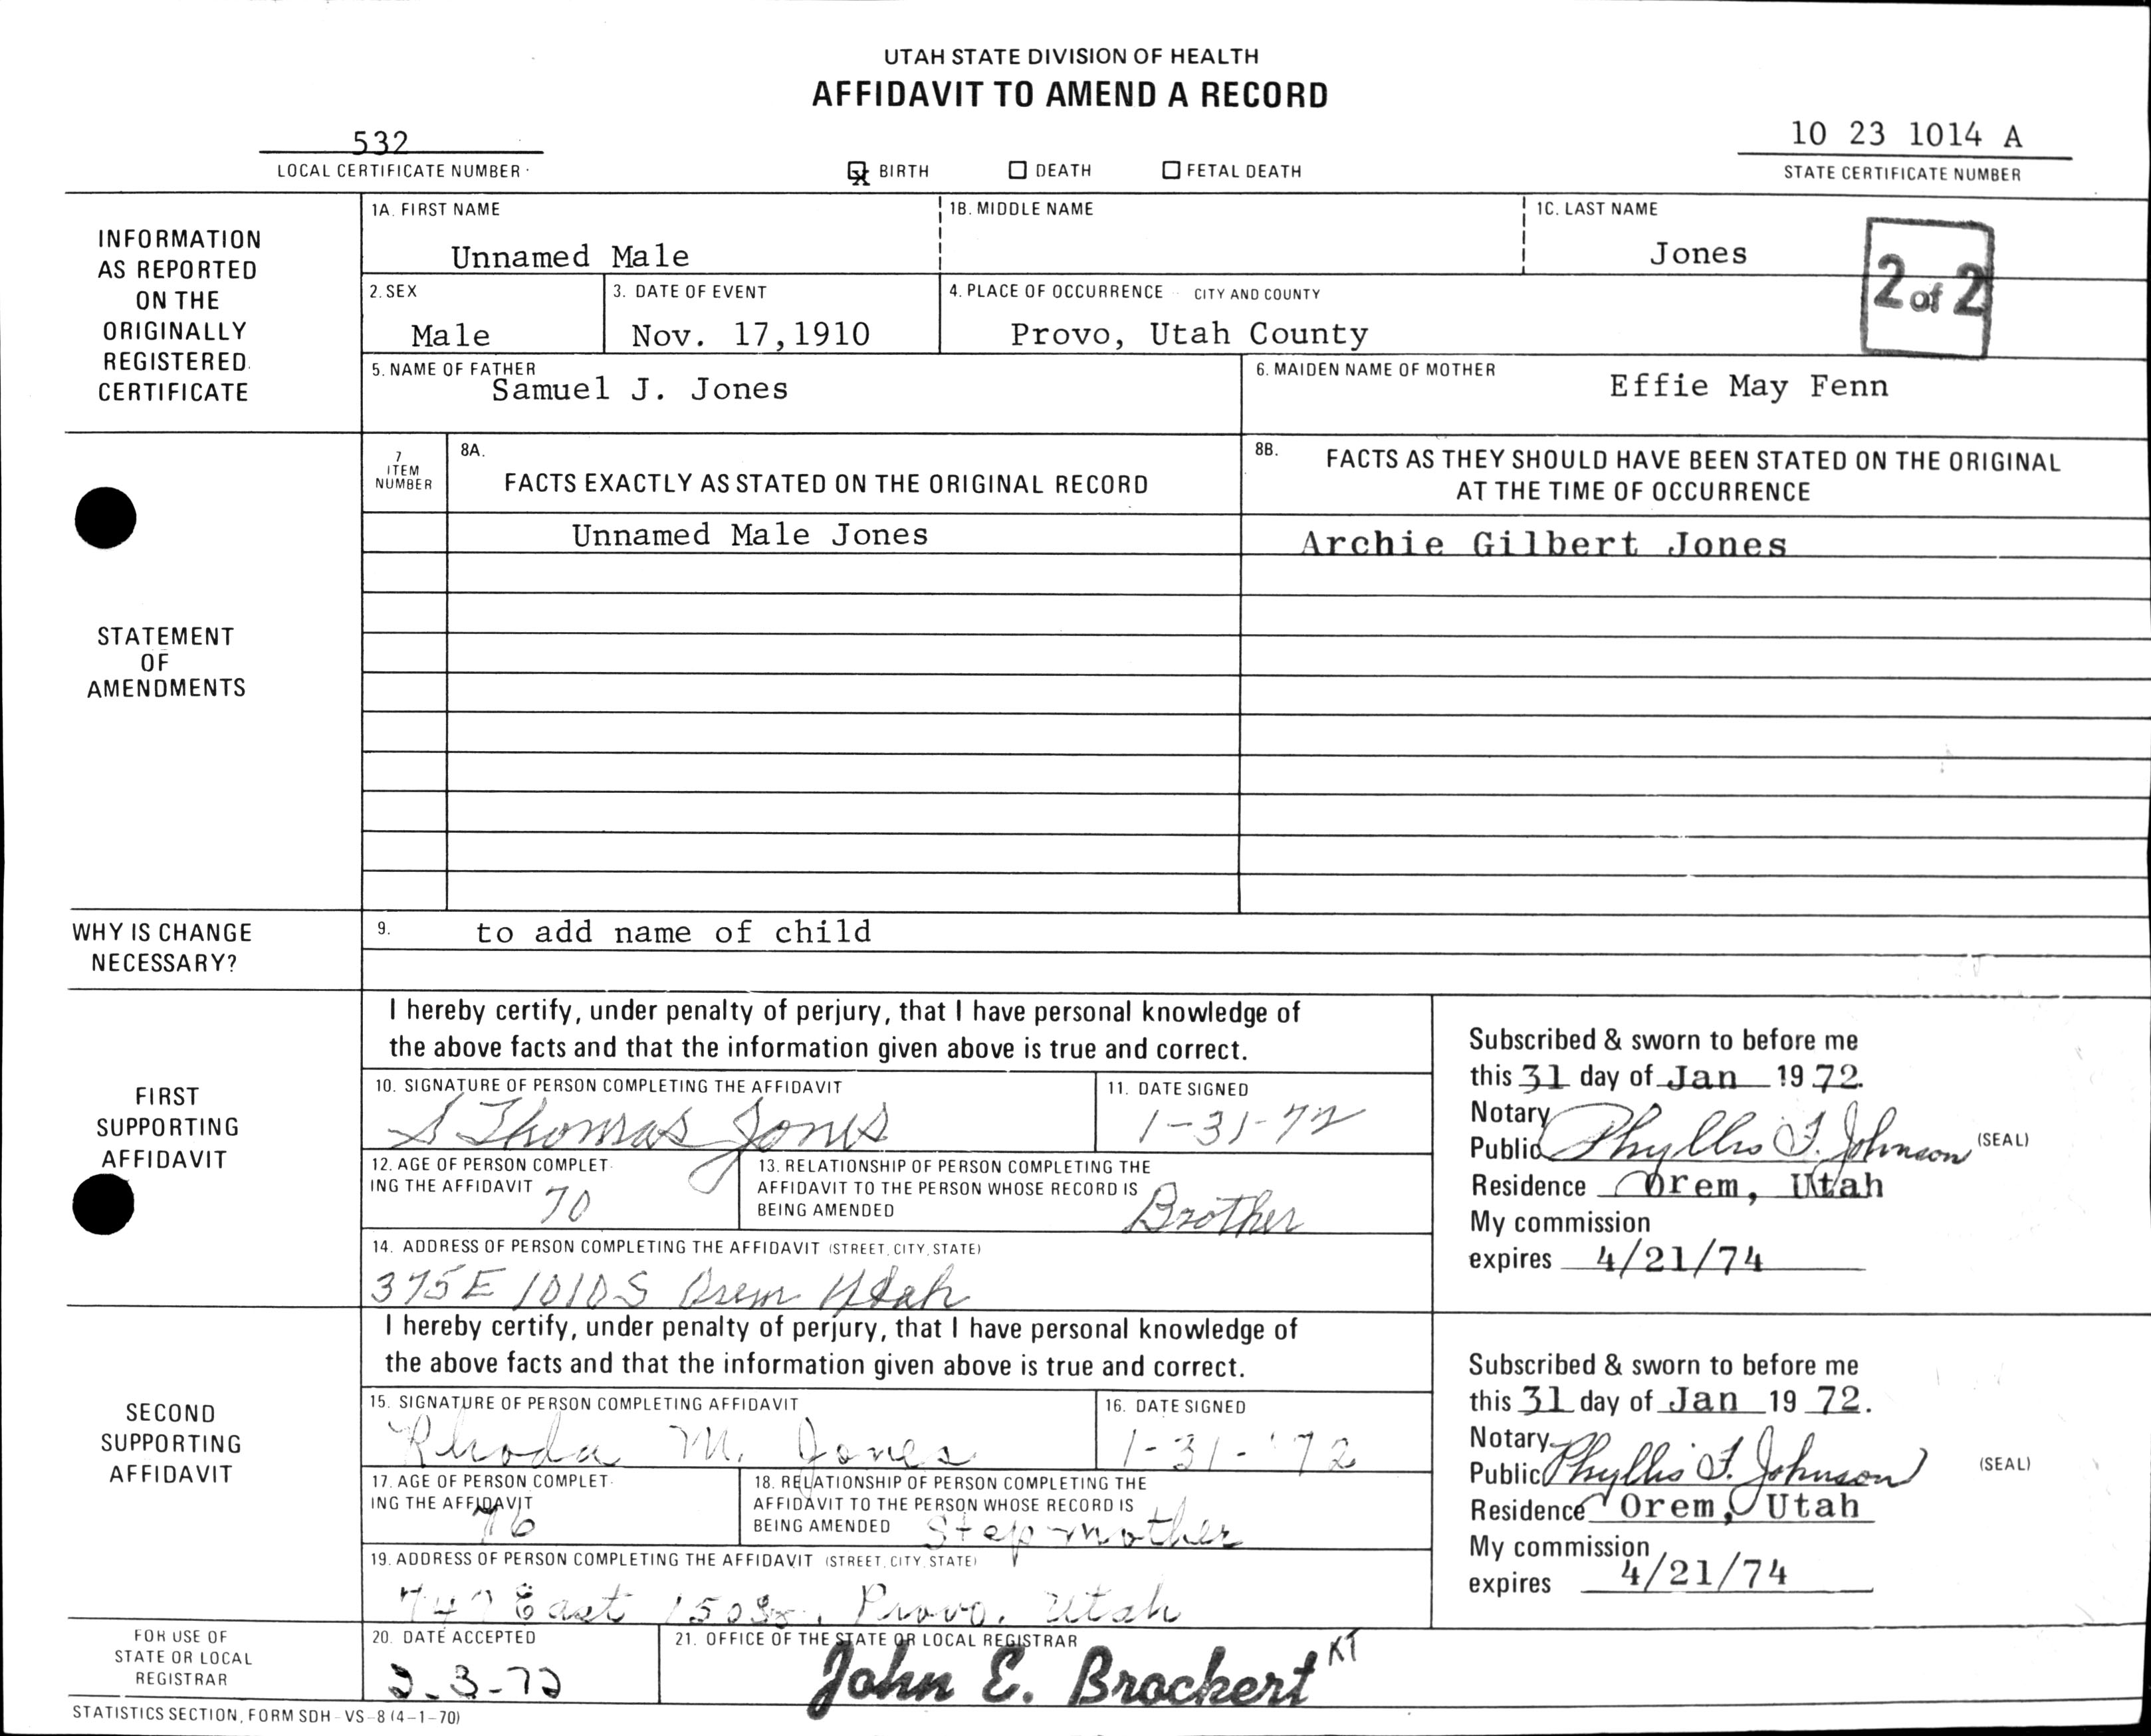 UTAH STATE DIVISION OF HEALTH
AFFIDAVIT TO AMEND A RECORD
532
LOCAL CERTIFICATE NUMBER
X BIRTH
DEATH
FETAL DEATH
10 23 1014 A
STATE CERTIFICATE NUMBER
INFORMATION
AS REPORTED
ON THE
ORIGINALLY
REGISTERED
CERTIFICATE
1A. FIRST NAME
Unnamed Male
1B. MIDDLE NAME
1C. LAST NAME
Jones
2 of 2
2. SEX
Male
3. DATE OF EVENT
Nov. 17,1910
4. PLACE OF OCCURRENCE CITY AND COUNTY
Provo, Utah County
5. NAME OF FATHER
Samuel J. Jones
6. MAIDEN NAME OF MOTHER
Effie May Fenn
STATEMENT
OF
AMENDMENTS
7
ITEM
NUMBER
8A.
FACTS EXACTLY AS STATED ON THE ORIGINAL RECORD
8B.
FACTS AS THEY SHOULD HAVE BEEN STATED ON THE ORIGINAL
AT THE TIME OF OCCURRENCE
Unnamed Male Jones
Archie Gilbert Jones
WHY IS CHANGE
NECESSARY?
9. to add name of child
FIRST
SUPPORTING
AFFIDAVIT
I hereby certify, under penalty of perjury, that I have personal knowledge of
the above facts and that the information given above is true and correct.
10. SIGNATURE OF PERSON COMPLETING THE AFFIDAVIT
S Thomas Jones
11. DATE SIGNED
1-31-72
12. AGE OF PERSON COMPLET-
ING THE AFFIDAVIT 70
13. RELATIONSHIP OF PERSON COMPLETING THE
AFFIDAVIT TO THE PERSON WHOSE RECORD IS
BEING AMENDED Brother
14. ADDRESS OF PERSON COMPLETING THE AFFIDAVIT (STREET, CITY, STATE)
375 E 1010 S Orem Utah
Subscribed & sworn to before me
this 31 day of Jan 19 72.
Notary
Public Phyllis F. Johnson (SEAL)
Residence Orem, Utah
My commission
expires 4/21/74
SECOND
SUPPORTING
AFFIDAVIT
I hereby certify, under penalty of perjury, that I have personal knowledge of
the above facts and that the information given above is true and correct.
15. SIGNATURE OF PERSON COMPLETING AFFIDAVIT
Rhoda M. Jones
16. DATE SIGNED
1-31-'72
17. AGE OF PERSON COMPLET-
ING THE AFFIDAVIT
76
18. RELATIONSHIP OF PERSON COMPLETING THE
AFFIDAVIT TO THE PERSON WHOSE RECORD IS
BEING AMENDED Step mother
19. ADDRESS OF PERSON COMPLETING THE AFFIDAVIT (STREET, CITY, STATE)
East Provo, Utah
Subscribed & sworn to before me
this 31 day of Jan 19 72.
Notary
Public Phyllis F. Johnson (SEAL)
Residence Orem, Utah
My commission
expires 4/21/74
FOR USE OF
STATE OR LOCAL
REGISTRAR
20. DATE ACCEPTED
2-3-72
21. OFFICE OF THE STATE OR LOCAL REGISTRAR
John E. Brockert KT
STATISTICS SECTION, FORM SDH-VS-8 (4-1-70)